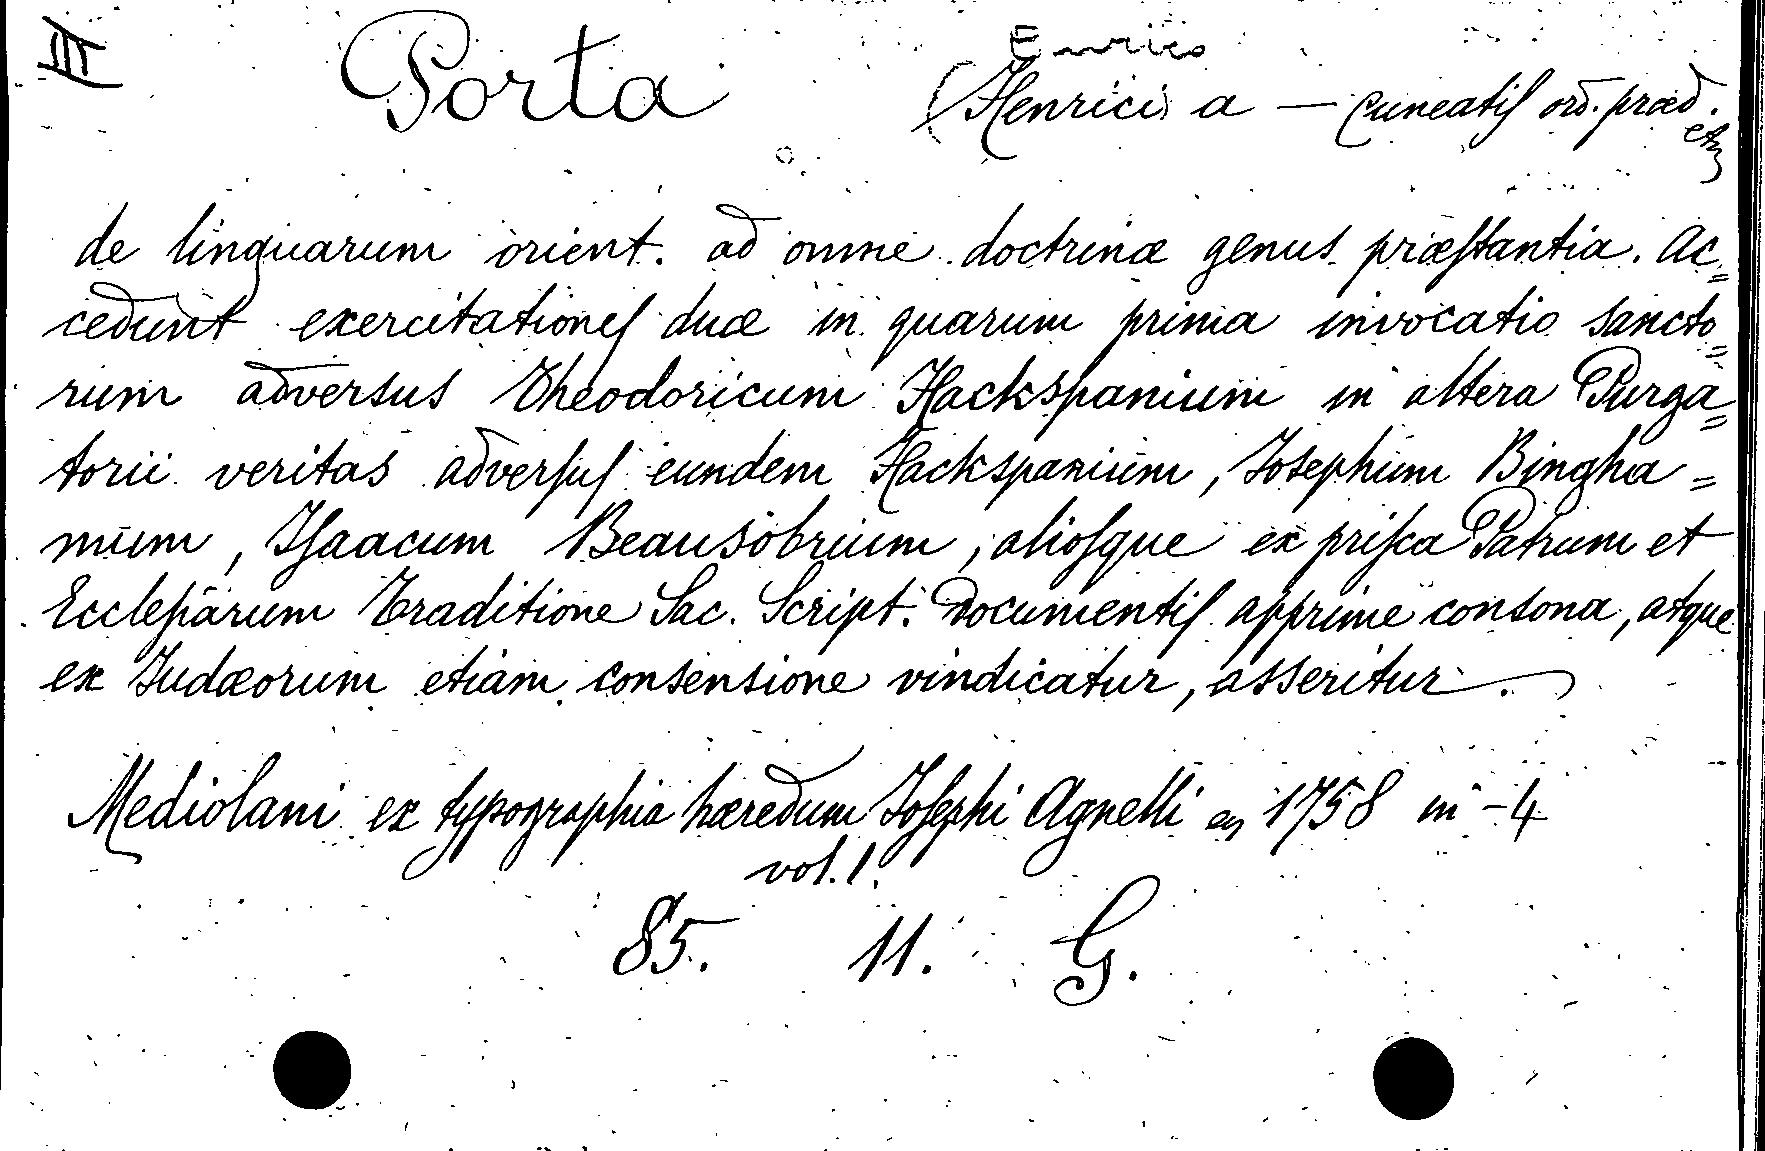 III Porta Enrico
(Henrici a — cuneatiſ ord. præd. etz
de linguarum orient. ad omne doctrinæ genus præſtantia. Ac=
cedunt exercitationeſ duæ in quarum prima invocatio sancto=
rum adversus Theodoricum Hackspanium in altera Purga=
torii veritas adverſuſ eundem Hackspanium, Josephum Bingha=
mum, Iſaacum Beausobrium, alioſque ex priſca Patrum et
Eccleſiarum Traditione Sac. Script. Documentiſ apprime consona, atque
ex Judæorum etiam consensione vindicatur, asseritur.
Mediolani ex typographia hæredum Joſephi Agnelli 1758 in-4
vol. 1.
85. 11. G.